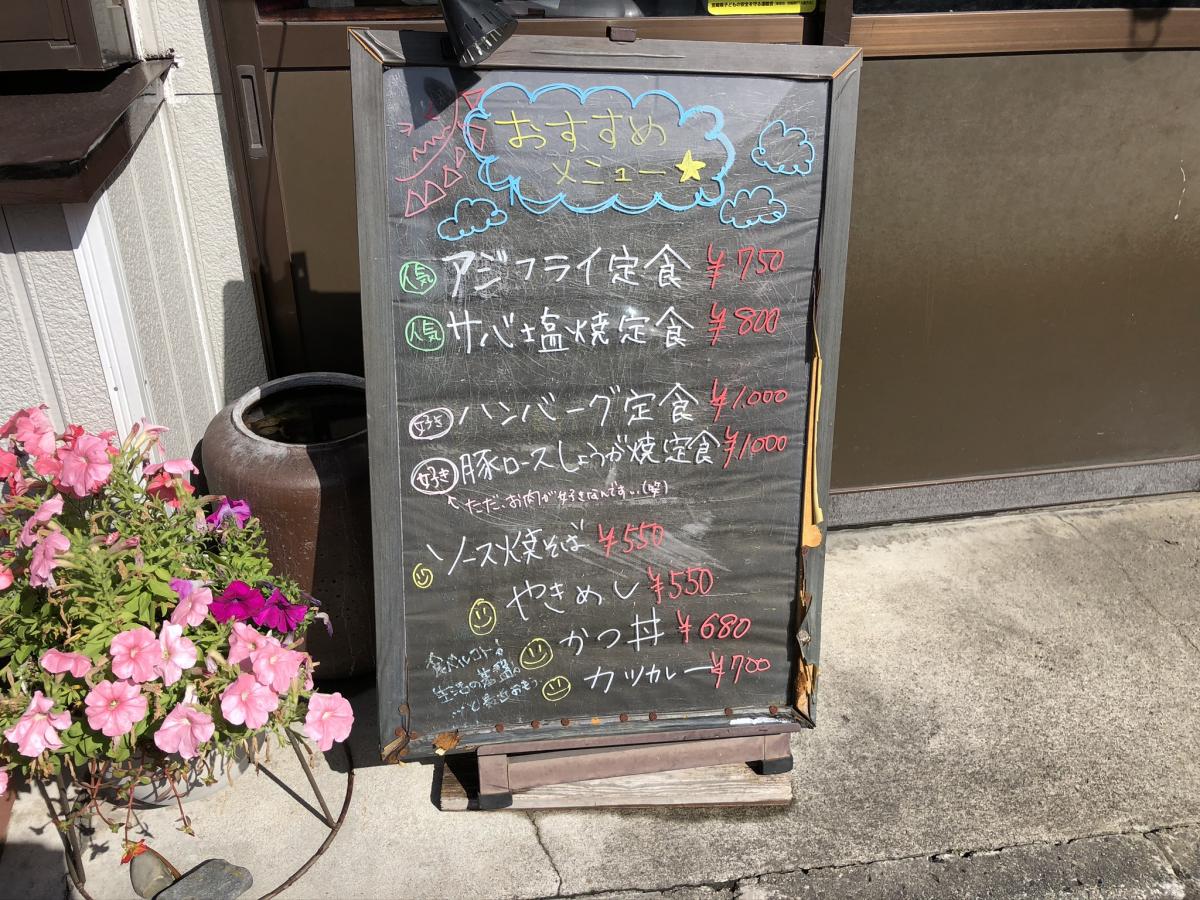 おすすめ
メニュー
人気 アジフライ定食 ¥750
人気 サバ塩焼定食 ¥800
好き ハンバーグ定食 ¥1,000
好き 豚ロースしょうが焼定食 ¥1000
ただ、お肉が好きなんです…(笑)
ソース焼そば ¥550
やきめし ¥550
かつ丼 ¥680
カツカレー ¥700
食べルコトが
生活の基盤。
と最近おもう。